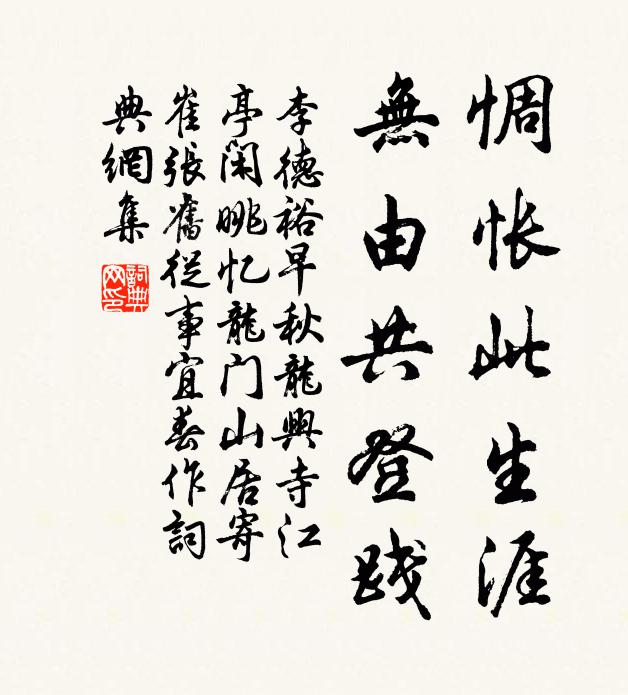 惆怅此生涯
無由共登践
李德裕早秋龍興寺江
亭闲眺忆龍门山居寄
崔張舊從事宜春作詞
典網集
詞典
网印